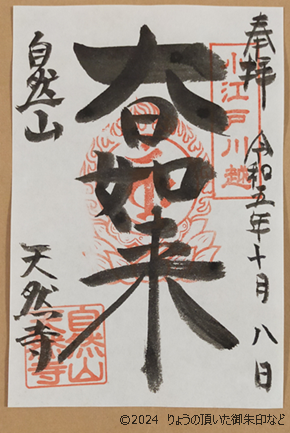 奉拝
小江戸川越
令和五年十月八日
大日如来
自然山
天然寺
自然山
天然寺
©2024 りょうの頂いた御朱印など